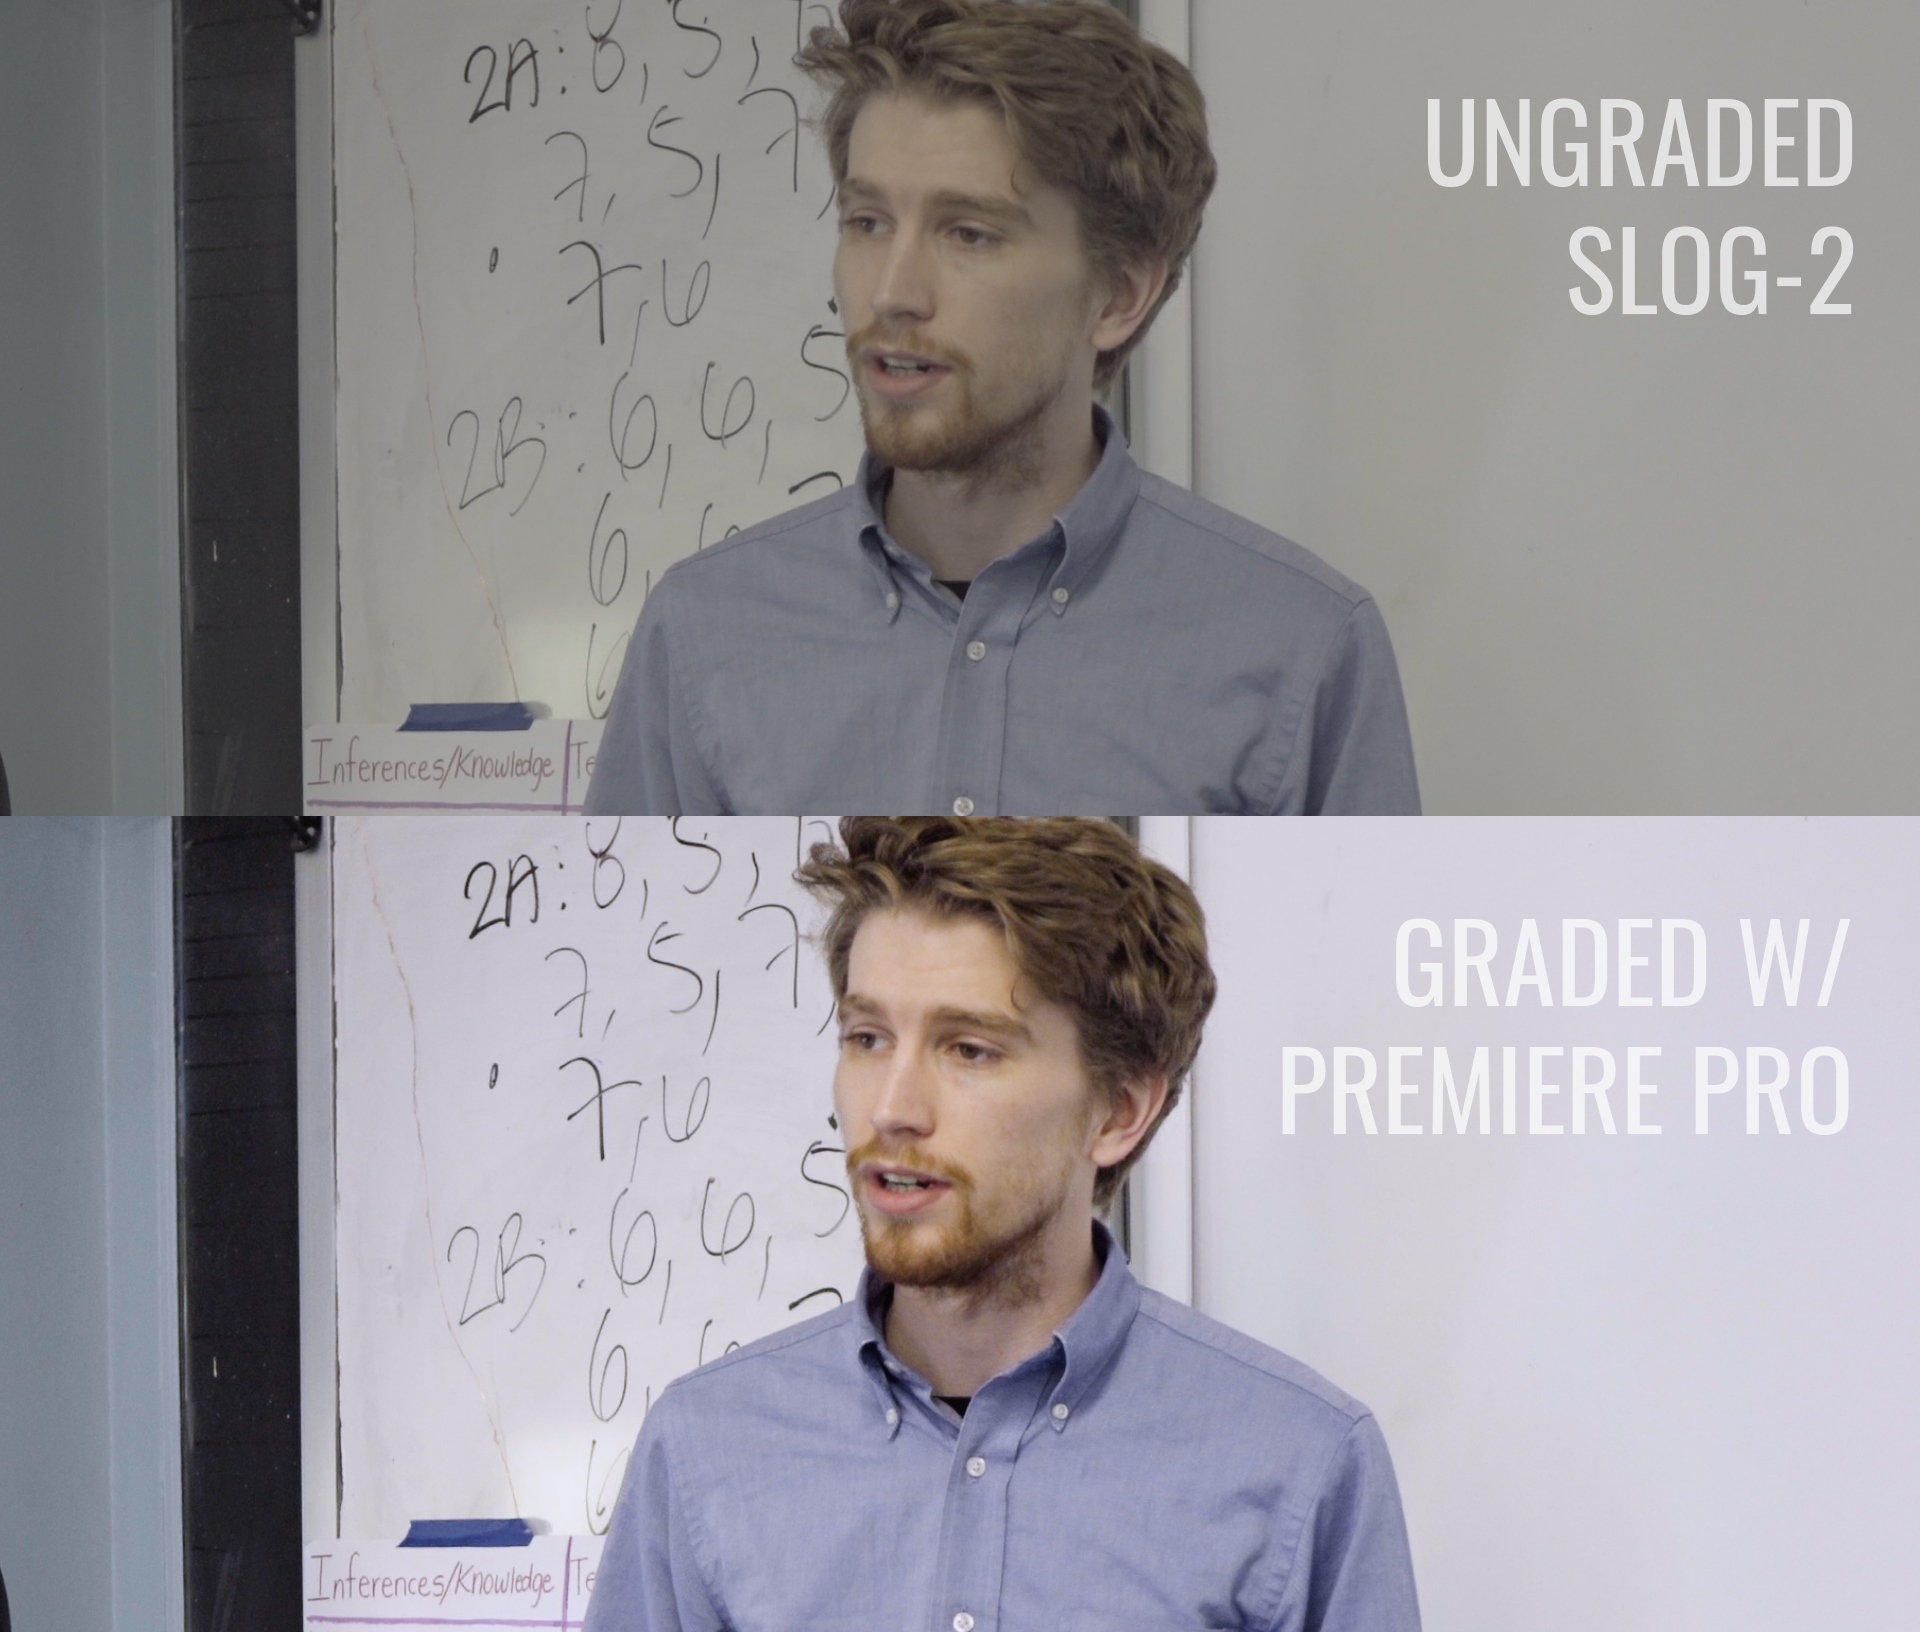 2A: 8, 5,
7, 5, 7,
7, 6
2B: 6, 6, 5
6,
6
Inferences/Knowledge
UNGRADED
SLOG-2
2A: 8, 5,
7, 5, 7,
7, 6
2B: 6, 6, 5
6,
6
Inferences/Knowledge
GRADED W/
PREMIERE PRO